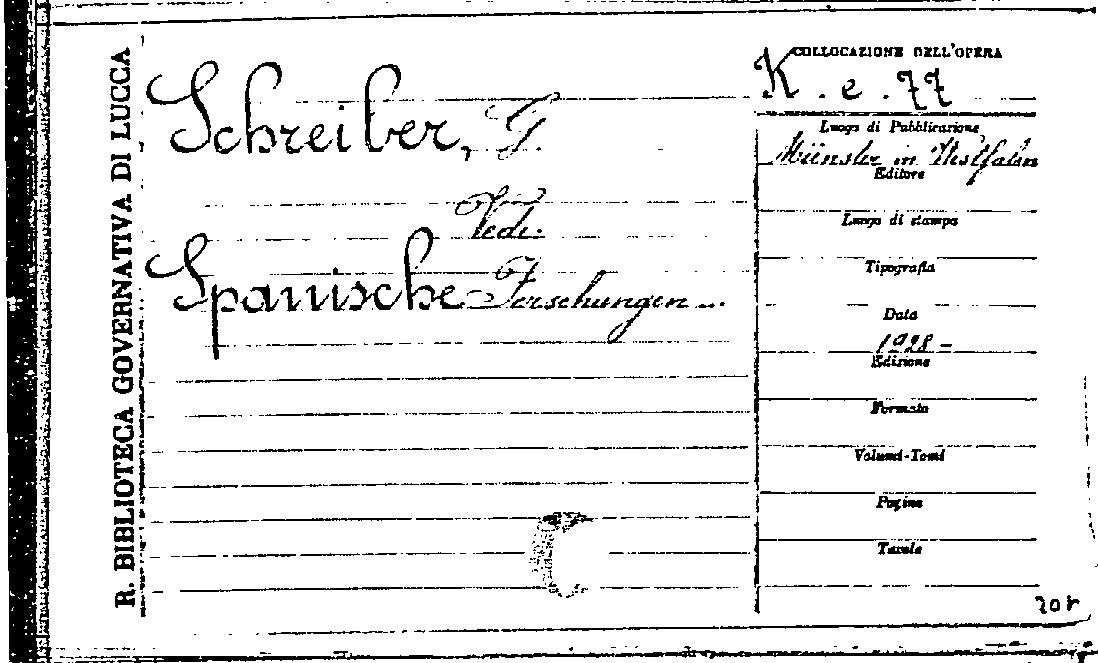 R. BIBLIOTECA GOVERNATIVA DI LUCCA
Schreiber, G.
Vedi.
Spanische Forschungen ...
COLLOCAZIONE DELL'OPERA
K . e . 77
Luogo di Pubblicazione
Münster in Westfalen
Editore
Luogo di stampa
Tipografia
Data
1928 -
Edizione
Formato
Volumi-Tomi
Pagine
Tavole